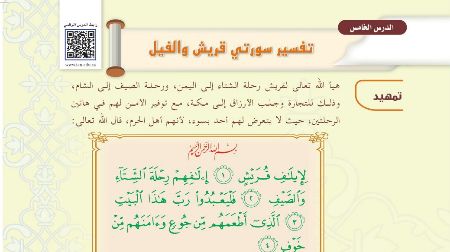 الدرس الخامس
رابط الدرس الرقمي
تفسير سورتي قريش والفيل
www.ien.edu.sa
تمهيد
هيأ الله تعالى لقريش رحلة الشتاء إلى اليمن، ورحلة الصيف إلى الشام،
وذلك للتجارة وجلب الأرزاق إلى مكة، مع توفير الأمن لهم في هاتين
الرحلتين، حيث لا يتعرض لهم أحد بسوء، لأنهم أهل الحرم، قال الله تعالى:
بِسْمِ اللَّهِ الرَّحْمَٰنِ الرَّحِيمِ
لِإِيلَٰفِ قُرَيْشٍ ١ إِۦلَٰفِهِمْ رِحْلَةَ ٱلشِّتَآءِ
وَٱلصَّيْفِ ٢ فَلْيَعْبُدُوا۟ رَبَّ هَٰذَا ٱلْبَيْتِ
٣ ٱلَّذِىٓ أَطْعَمَهُم مِّن جُوعٍ وَءَامَنَهُم مِّنْ
خَوْفٍۭ ٤